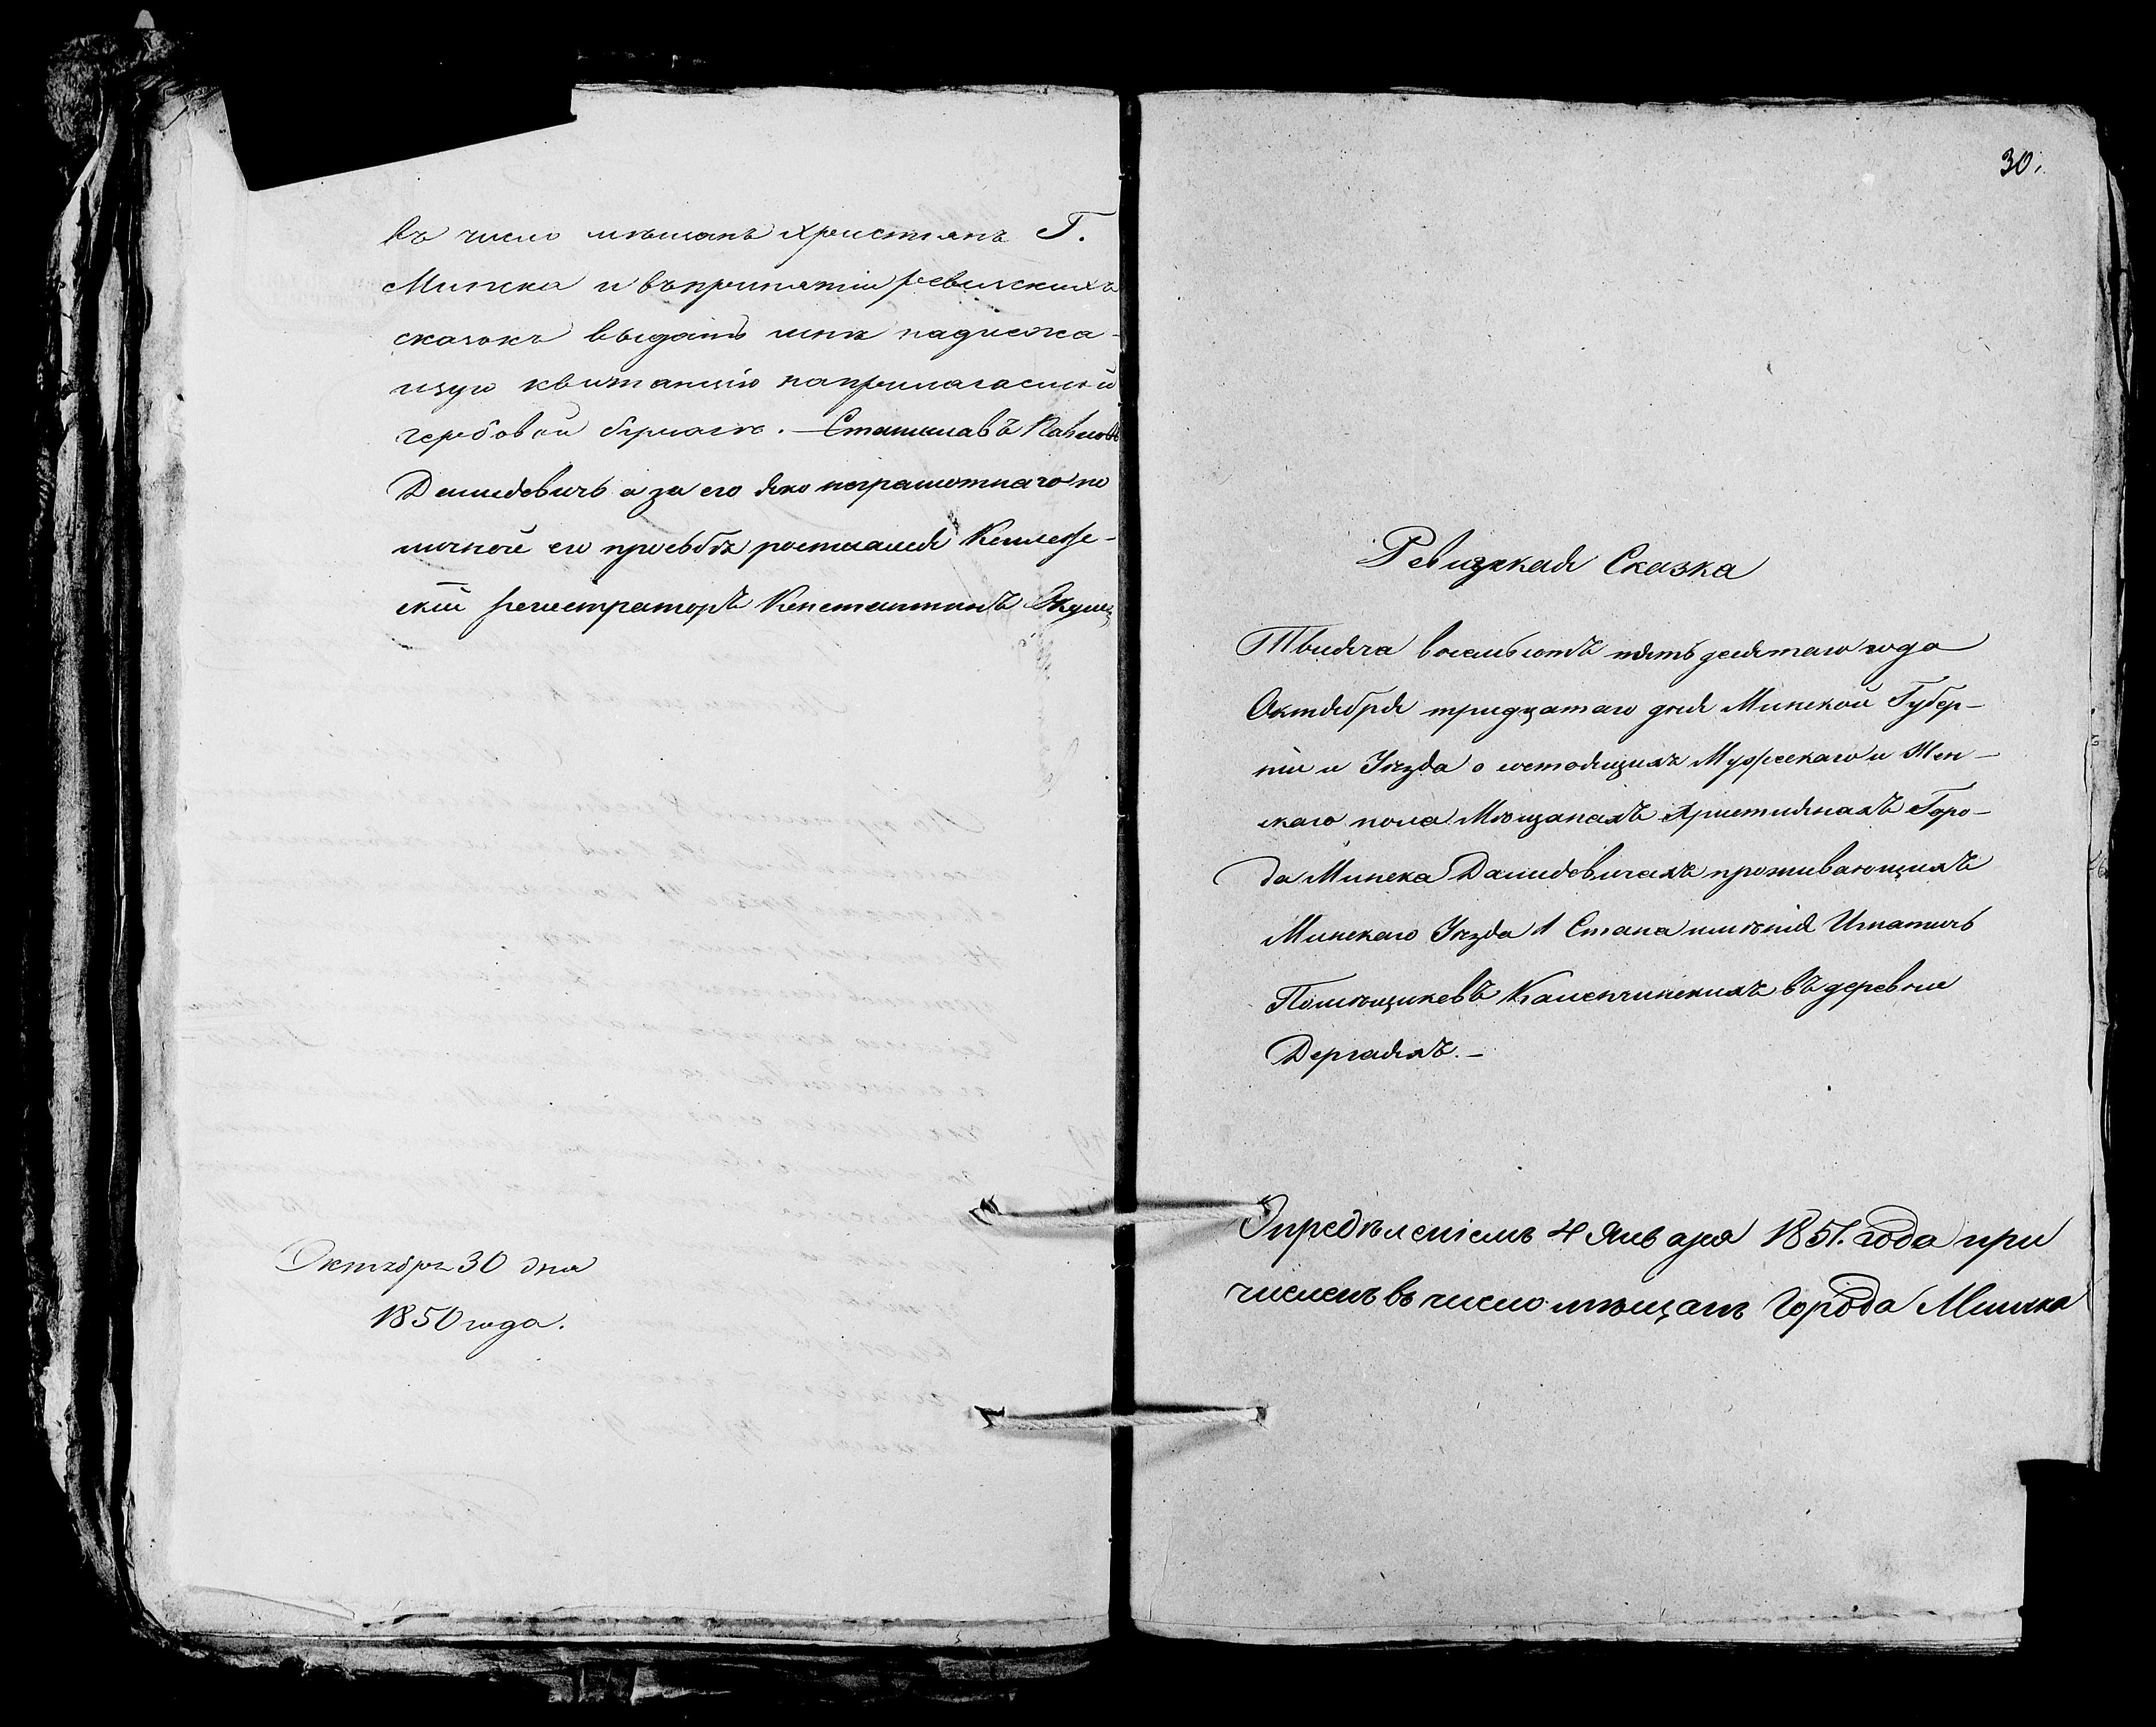 въ число мѣщанъ христіянъ Г.
Минска и въ принятіи ревизскихъ
сказокъ выдать мнѣ надлежа-
щую квитанцію на прилагаемой
гербовой бумагѣ. – Станиславъ Павловъ
Демидовичъ а за его яко неграмотнаго по
личной его просьбѣ росписался Коллеже-
скій регистраторъ Константинъ
Октября 30 дня
1850 года.
30.
Ревизкая Сказка
Тысяча восемьсотъ пять десятаго года
Октября тридцатаго дня Минской Губер-
ніи и Уѣзда о состоящихъ Мужескаго и Жен-
скаго пола Мѣщанахъ Християнахъ Горо-
да Минска Демидовичахъ проживающихъ
Минскаго Уѣзда 1 Стана имѣнія Игнатичь
Помѣщиковъ Каменчинскихъ въ деревне
Дергаяхъ. –
Опредѣленіемъ 4 Января 1851. года при
численъ въ число мѣщанъ Города Минска